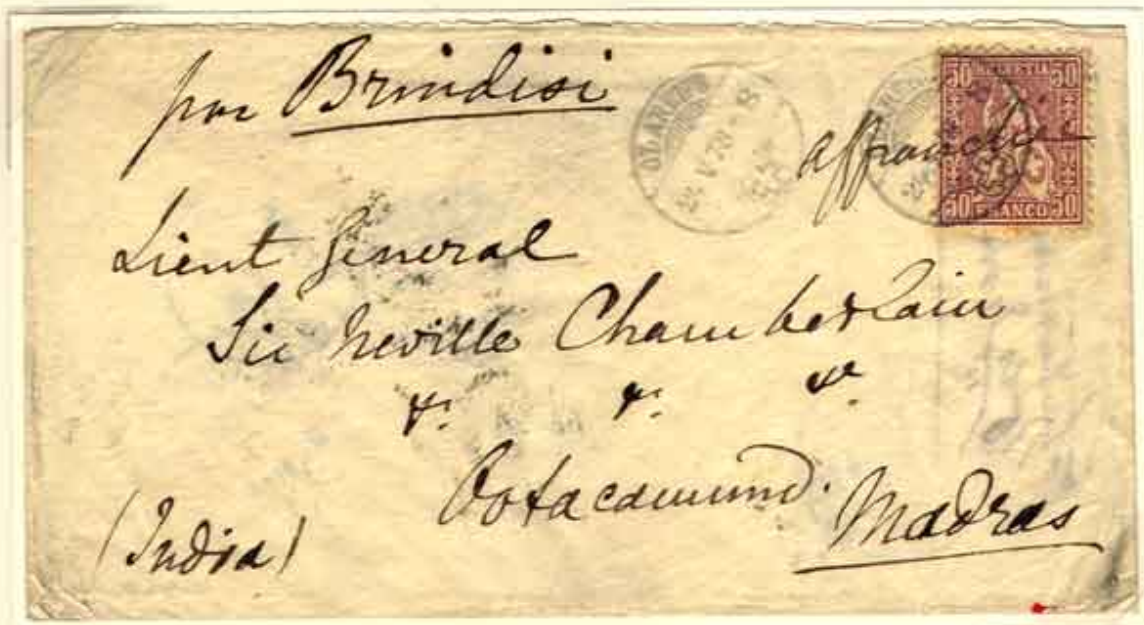 par Brindisi
affranchie
50 HELVETIA 50
50 FRANCO 50
Lieut General
Sir Neville Chamberlain
&. &. &c
Ootacamund.
Madras
(India)